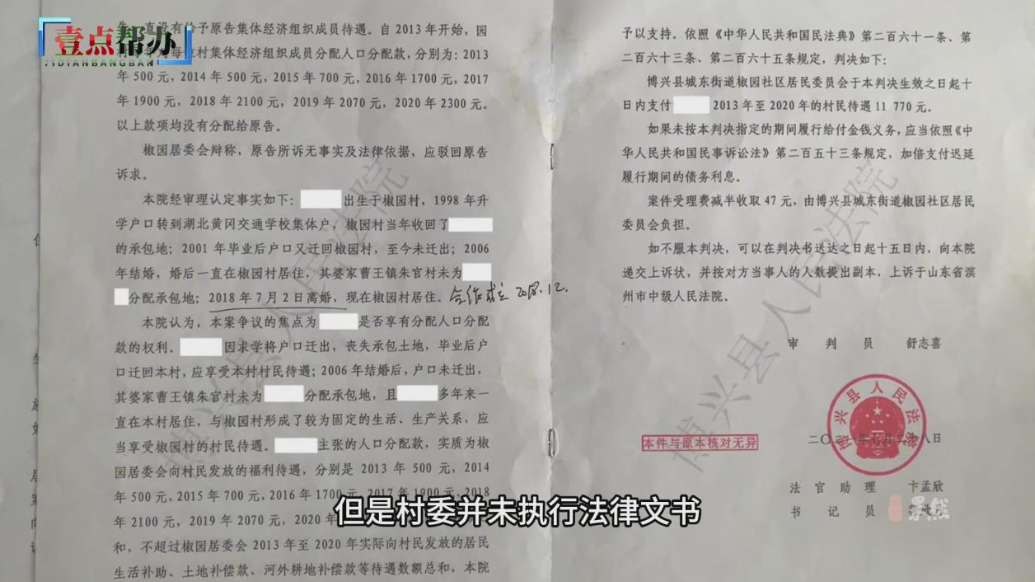 壹点帮办
YIDIANBANGBAN
直没有给予原告集体经济组织成员待遇。自 2013 年开始，因
村集体经济组织成员分配人口分配款，分别为：2013
年 500 元，2014 年 500 元，2015 年 700 元，2016 年 1700 元，2017
年 1900 元，2018 年 2100 元，2019 年 2070 元，2020 年 2300 元。
以上款项均没有分配给原告。
椒园居委会辩称，原告所诉无事实及法律依据，应驳回原告
诉求。
本院经审理认定事实如下：出生于椒园村，1998 年升
学户口转到湖北黄冈交通学校集体户，椒园村当年收回了
的承包地；2001 年毕业后户口又迁回椒园村，至今未迁出；2006
年结婚，婚后一直在椒园村居住，其婆家曹王镇朱官村未为
分配承包地；2018 年 7 月 2 日离婚，现在椒园村居住。
本院认为，本案争议的焦点为是否享有分配人口分配
款的权利。因求学将户口迁出，丧失承包土地，毕业后户
口迁回本村，应享受本村村民待遇；2006 年结婚后，户口未迁出，
其婆家曹王镇朱官村未为分配承包地，且多年来一
直在本村居住，与椒园村形成了较为固定的生活、生产关系，应
当享受椒园村的村民待遇。主张的人口分配款，实质为椒
园居委会向村民发放的福利待遇，分别是 2013 年 500 元，2014
年 500 元，2015 年 700 元，2016 年 1700 元，2017 年 1900 元，2018
年 2100 元，2019 年 2070 元，2020 年
和，不超过椒园居委会 2013 年至 2020 年实际向村民发放的居民
生活补助、土地补偿款、河外耕地补偿款等待遇数额总和，本院
予以支持。依照《中华人民共和国民法典》第二百六十一条、第
二百六十三条、第二百六十五条规定，判决如下：
博兴县城东街道椒园社区居民委员会于本判决生效之日起十
日内支付 2013 年至 2020 年的村民待遇 11 770 元。
如果未按本判决指定的期间履行给付金钱义务，应当依照《中
华人民共和国民事诉讼法》第二百五十三条规定，加倍支付迟延
履行期间的债务利息。
案件受理费减半收取 47 元，由博兴县城东街道椒园社区居民
委员会负担。
如不服本判决，可以在判决书送达之日起十五日内，向本院
递交上诉状，并按对方当事人的人数提出副本，上诉于山东省滨
州市中级人民法院。
审 判 员 舒志喜
博兴县人民法院
本件与原本核对无异
法 官 助 理 卞孟欣
书 记 员
但是村委并未执行法律文书